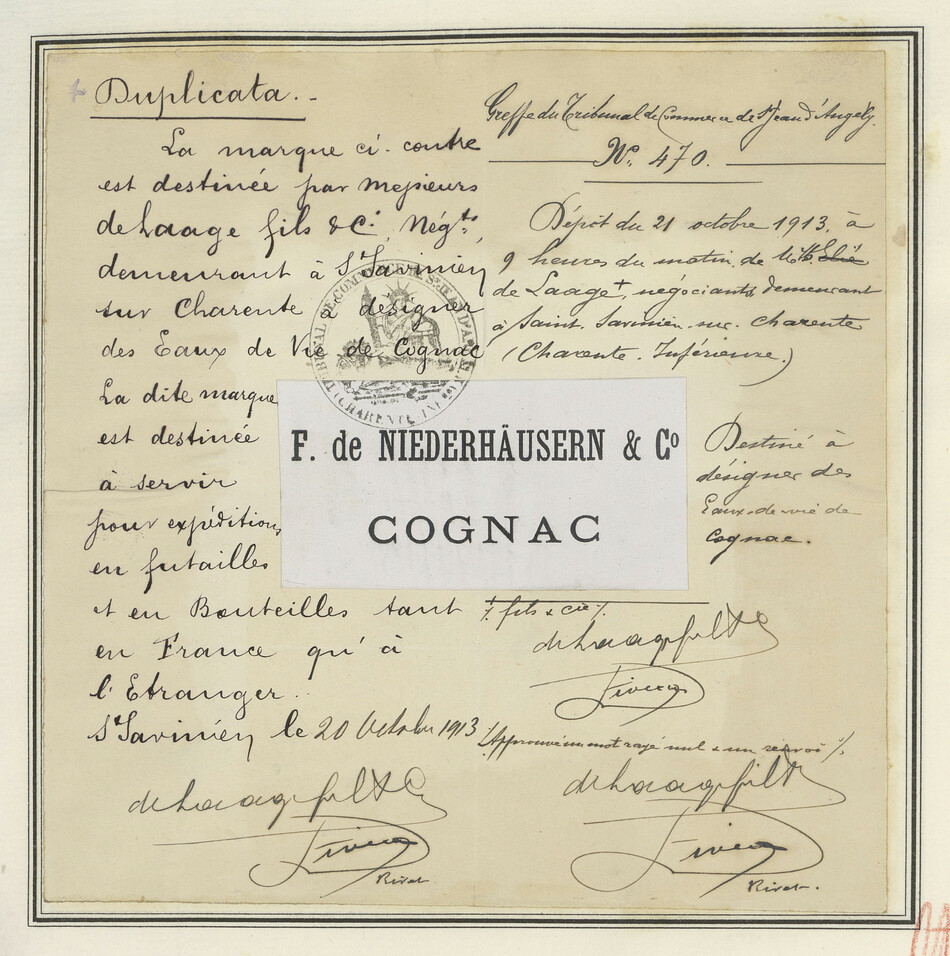 Duplicata.-
La marque ci-contre
est destinée par messieurs
de Laage fils & Cie. Négts.
demeurant à St Savinien
sur Charente à désigner
des Eaux de Vie de Cognac
La dite marque
est destinée
à servir
pour expéditions
en futailles
et en Bouteilles tant
en France qu'à
l'Etranger.
St Savinien le 20 Octobre 1913
de Laage fils & Co
Rivet
Greffe du Tribunal de Commerce de St Jean d'Angély.
No. 470.
Dépôt du 21 octobre 1913, à
9 heures du matin, de
de Laage +, négociants demeurant
à Saint-Savinien-sur-Charente
(Charente-Inférieure.)
TRIBUNAL DE COMMERCE ST JEAN D'ANGELY
(CHARENTE INF
F. de NIEDERHÄUSERN & Co
COGNAC
Destiné à
désigner des
Eaux-de-vie de
Cognac.
+ fils & cie /.
de Laage fils & Co
Approuvé un mot rayé nul & un renvoi /.
de Laage fils & Co
Rivet.